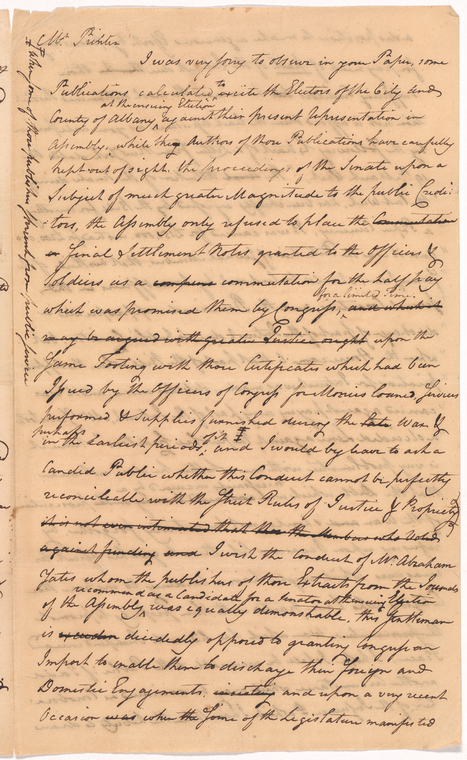 Mr. Printer
I was very sorry to observe in your Paper, some
Publications calculated to excite the Electors of the City and
at the ensuing Election
County of Albany against their present Representation in
Assembly, while they Authors of those Publications have carefully
kept out of sight, the proceedings of the Senate upon a
Subject of much greater Magnitude to the public Credi-
-tors, the Assembly only refused to place the Commutation
or Final Settlement Notes granted to the Officers &
Soldiers as a compens commutation for the half pay
for a limited Time
which was promised them by Congress, and which it
may be argued with greater Justice ought upon the
same Footing with those Certificates which had been
Issued by the Officers of Congress for Monies loaned, Services
performed & Supplies furnished during the late War &
perhaps
in the Earliest periods of it, and I would beg leave to ask a
Candid Public whether this Conduct cannot be perfectly
reconcileable with the Strict Rules of Justice & Propriety
it is not even intimated that the Members who voted
against funding and I wish the Conduct of Mr. Abraham
Yates whom the publishers of those Extracts from the Journals
recommend as a Candidate for a Senator at the ensuing Election
of the Assembly was equally demonstrable, this Gentleman
is decidedly opposed to granting Congress an
Impost to enable them to discharge their Foreign and
Domestic Engagements, and upon a very recent
Occasion was when the Joine of the Legislature manifested
taken from those publications from public